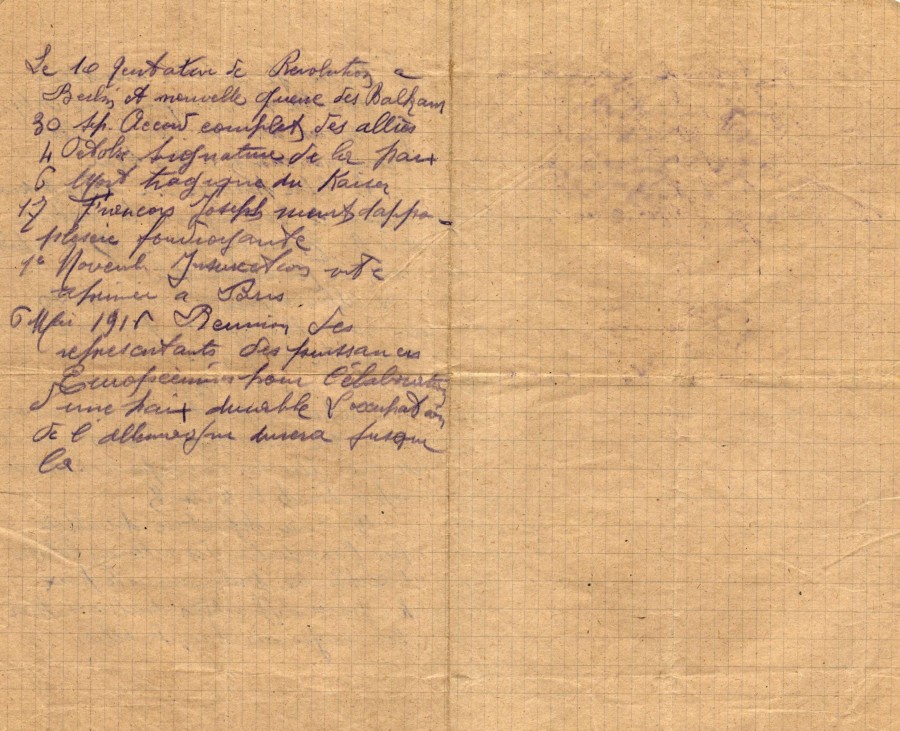 Le 10 tentative de Revolution a
Berlin et nouvelle guerre des Balkans
30 sep. Accord complet des alliés
4 Octobre signature de la paix
6 Mort tragique du Kaiser
17 Francois Joseph meurt d'appo-
plexie foudroyante
1e Novemb Insurection vite
reprimee a Paris
6 Mai 1915 Reunion des
representants des puissances
Européennes pour l'élaboration
d'une paix durable L'occupation
de l'allemagne durera jusque
la